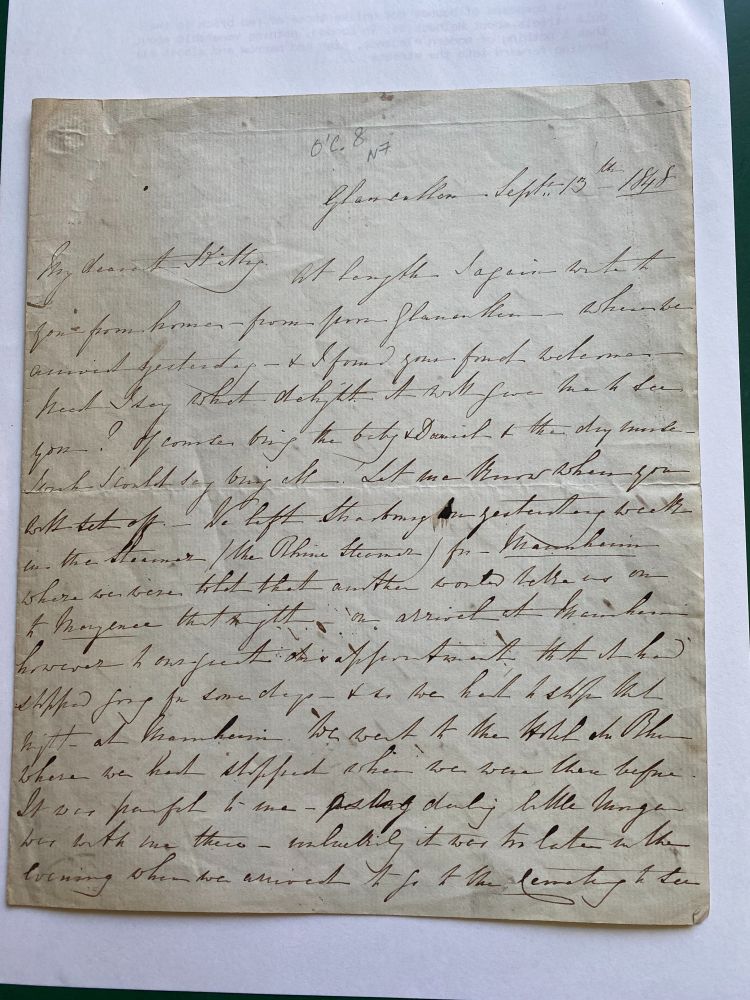 O'C. 8
N7
Glancullen Sept. 13th 1848
My dearest Kitty At length I again write to
you from home - from poor Glancullen - where we
arrived yesterday - & I found your fond welcome -
Need I say what delight it will give me to see
you? Of course bring the baby & Daniel & the dry nurse -
I could say bring all! Let me know when you
will set off - We left Strasbourg on yesterday week
in the Steamer (the Rhine Steamer) for Mannheim
where we were told that another would take us on
to Mayence that night - on arrival at Mannheim
however to our great disappointment, that it had
stopped going for some days - & so we had to stop that
night at Mannheim. We went to the Hotel du Rhin
where we had stopped when we were there before.
It was painful to me - darling little Morgan
was with me there - unluckily it was too late in the
evening when we arrived to go to the cemetery to see